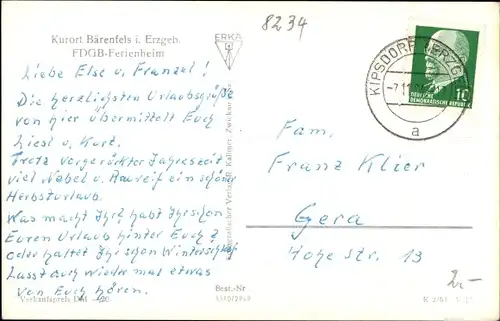 8234
Kurort Bärenfels i. Erzgeb.
FDGB-Ferienheim
ERKA
Liebe Else u. Franzel!
Die herzlichsten Urlaubsgrüße
von hier übermittelt Euch
Liesl u. Kurt.
Trotz vorgerückter Jahreszeit
viel Nebel u. Raureif ein schöner
Herbsturlaub.
Was macht Ihr? habt Ihr schon
Euren Urlaub hinter Euch?
oder haltet Ihr schon Winterschlaf
Lasst auch wieder mal etwas
von Euch hören.
Verkaufspreis DM -,20
Best.-Nr
KIPSDORF (ERZGEB)
-7.11.
a
10
DEUTSCHE
DEMOKRATISCHE REPUBLIK
Fam.
Franz Klier
Gera
Hohe str. 13
2,-